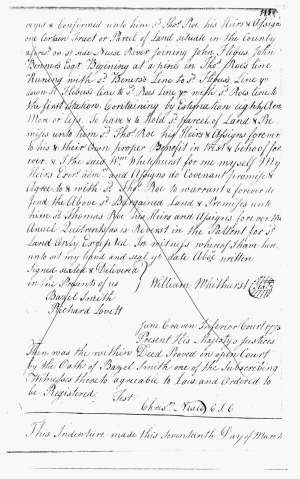 & Confirmed unto him sd. Thos. Roe his Heirs & Assigns
one Certain Tract or Parcel of Land Situate in the County
aforesd. on side Nuse River joining John
Esqr. Begining at a pine in Thos. Roe's line
Runing with sd. line to sd. line
line to sd. Roes line with sd. Roes line to
the first Station Containing by Estimation eighty Acres
More or less. To have & to Hold sd. parcel of Land & Pre
misses unto him sd. Thos. Roe his Heirs & Assigns forever
to his & their Own proper Benefit & behoof for
ever. & I the said Wm. Whitehurst for me myself My
Heirs Exrs. adms. and Assigns do Covenant promise &
Agree to & with sd. Thos. Roe to warrant & forever de
find the Above sd. Bargained Land & Premisses unto
him sd. Thomas Roe his Heirs and Assigns forever the
Annuel Quitrents as is Reserved in the Pattent for sd.
Land Only Excepted. In witness whereof I have here
unto set my hand and seal date Above written
Signed sealed & Delivered
in the Presents of us
William Whithurst
Smith
Richard Lovett
June Craven Inferior Court 1773
Present His Majestys Justices
Then was the within Deed Proved in open Court
by the Oath of Smith one of the Subscribing
Witnesses thereto agreeable to Law and Ordered to
be Registered Test
Chrisr. Neale C S C
This Indenture made this seventeenth Day of March